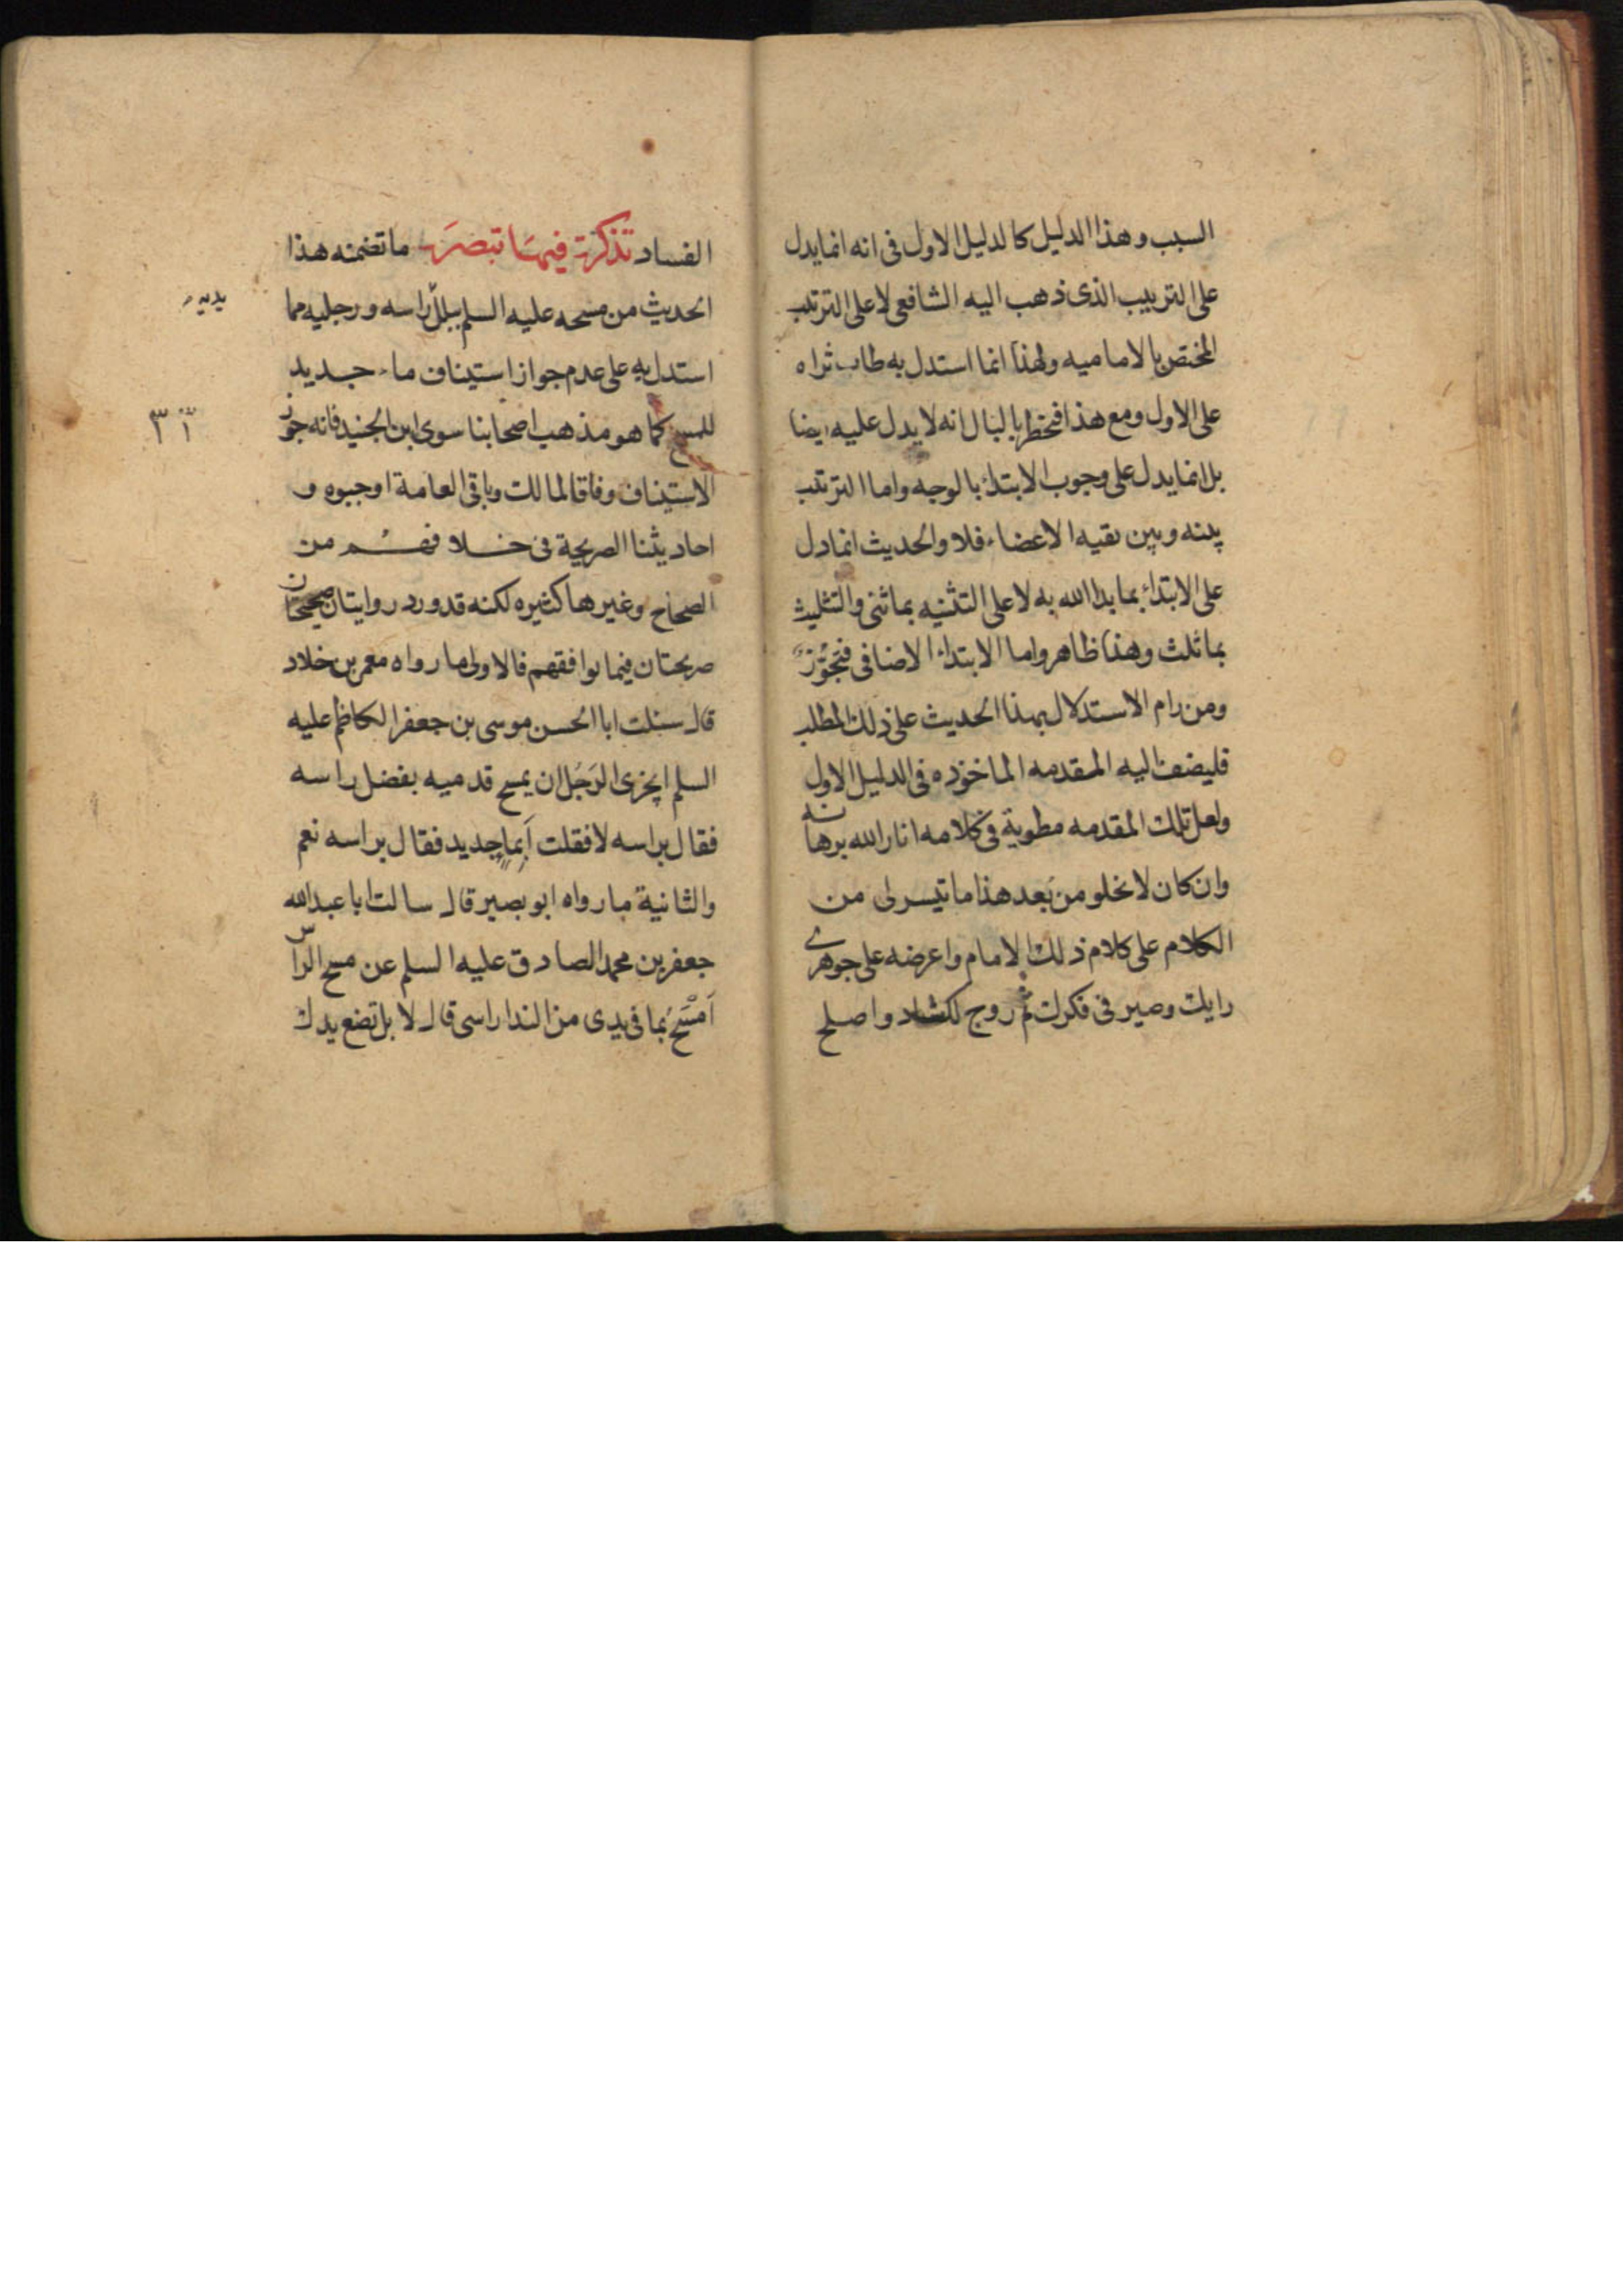 السبب وهذا الدليل كالدليل الاول فى انه انما يدل
على الترتيب الذى ذهب اليه الشافعى لا على الترتيب
المختص بالاماميه ولهذا انما استدل به طاب ثراه
على الاول ومع هذا فيخطر بالبال انه لا يدل عليه ايضا
بل انما يدل على وجوب الابتداء بالوجه واما الترتيب
بينه وبين بقيه الاعضاء فلا والحديث انما دل
على الابتداء بما بدا الله به لا على التثنيه بما ثنى والتثليث
بما ثلث وهذا ظاهر واما الابتداء الاضافى فتجوز
ومن رام الاستدلال بهذا الحديث على ذلك المطلب
فليضف اليه المقدمه الماخوذه فى الدليل الاول
ولعل تلك المقدمه مطوية فى كلامه انار الله برهانه
وان كان لا يخلو من بعد هذا ما تيسر لى من
الكلام على كلام ذلك الامام واعرضه على جوهرى
رايك وصير فى فكرك ثم روج لكساد واصلح
الفساد تذكرة فيها تبصرة ما تضمنه هذا
الحديث من مسحه عليه السلم ببلل راسه ورجليه مما
يديه
استدل به على عدم جواز استيناف ماء جديد
للمسح كما هو مذهب اصحابنا سوى ابن الجنيد فانه جوز
الاستيناف وفاقا لمالك وباقى العامة اوجبوه و
احاديثنا الصريحة فى خلافهم من
الصحاح وغيرها كثيره لكنه قد ورد روايتان صحيحتان
صريحتان فيما يوافقهم فالاولى ما رواه معمر بن خلاد
قال سئلت ابا الحسن موسى بن جعفر الكاظم عليه
السلم ايجزى الرجل ان يمسح قدميه بفضل راسه
فقال براسه لا فقلت أبماء جديد فقال براسه نعم
والثانية ما رواه ابو بصير قال سالت ابا عبد الله
جعفر بن محمد الصادق عليه السلم عن مسح الراس
أمسح بما فى يدى من الندا راسى قال لا بل تضع يدك